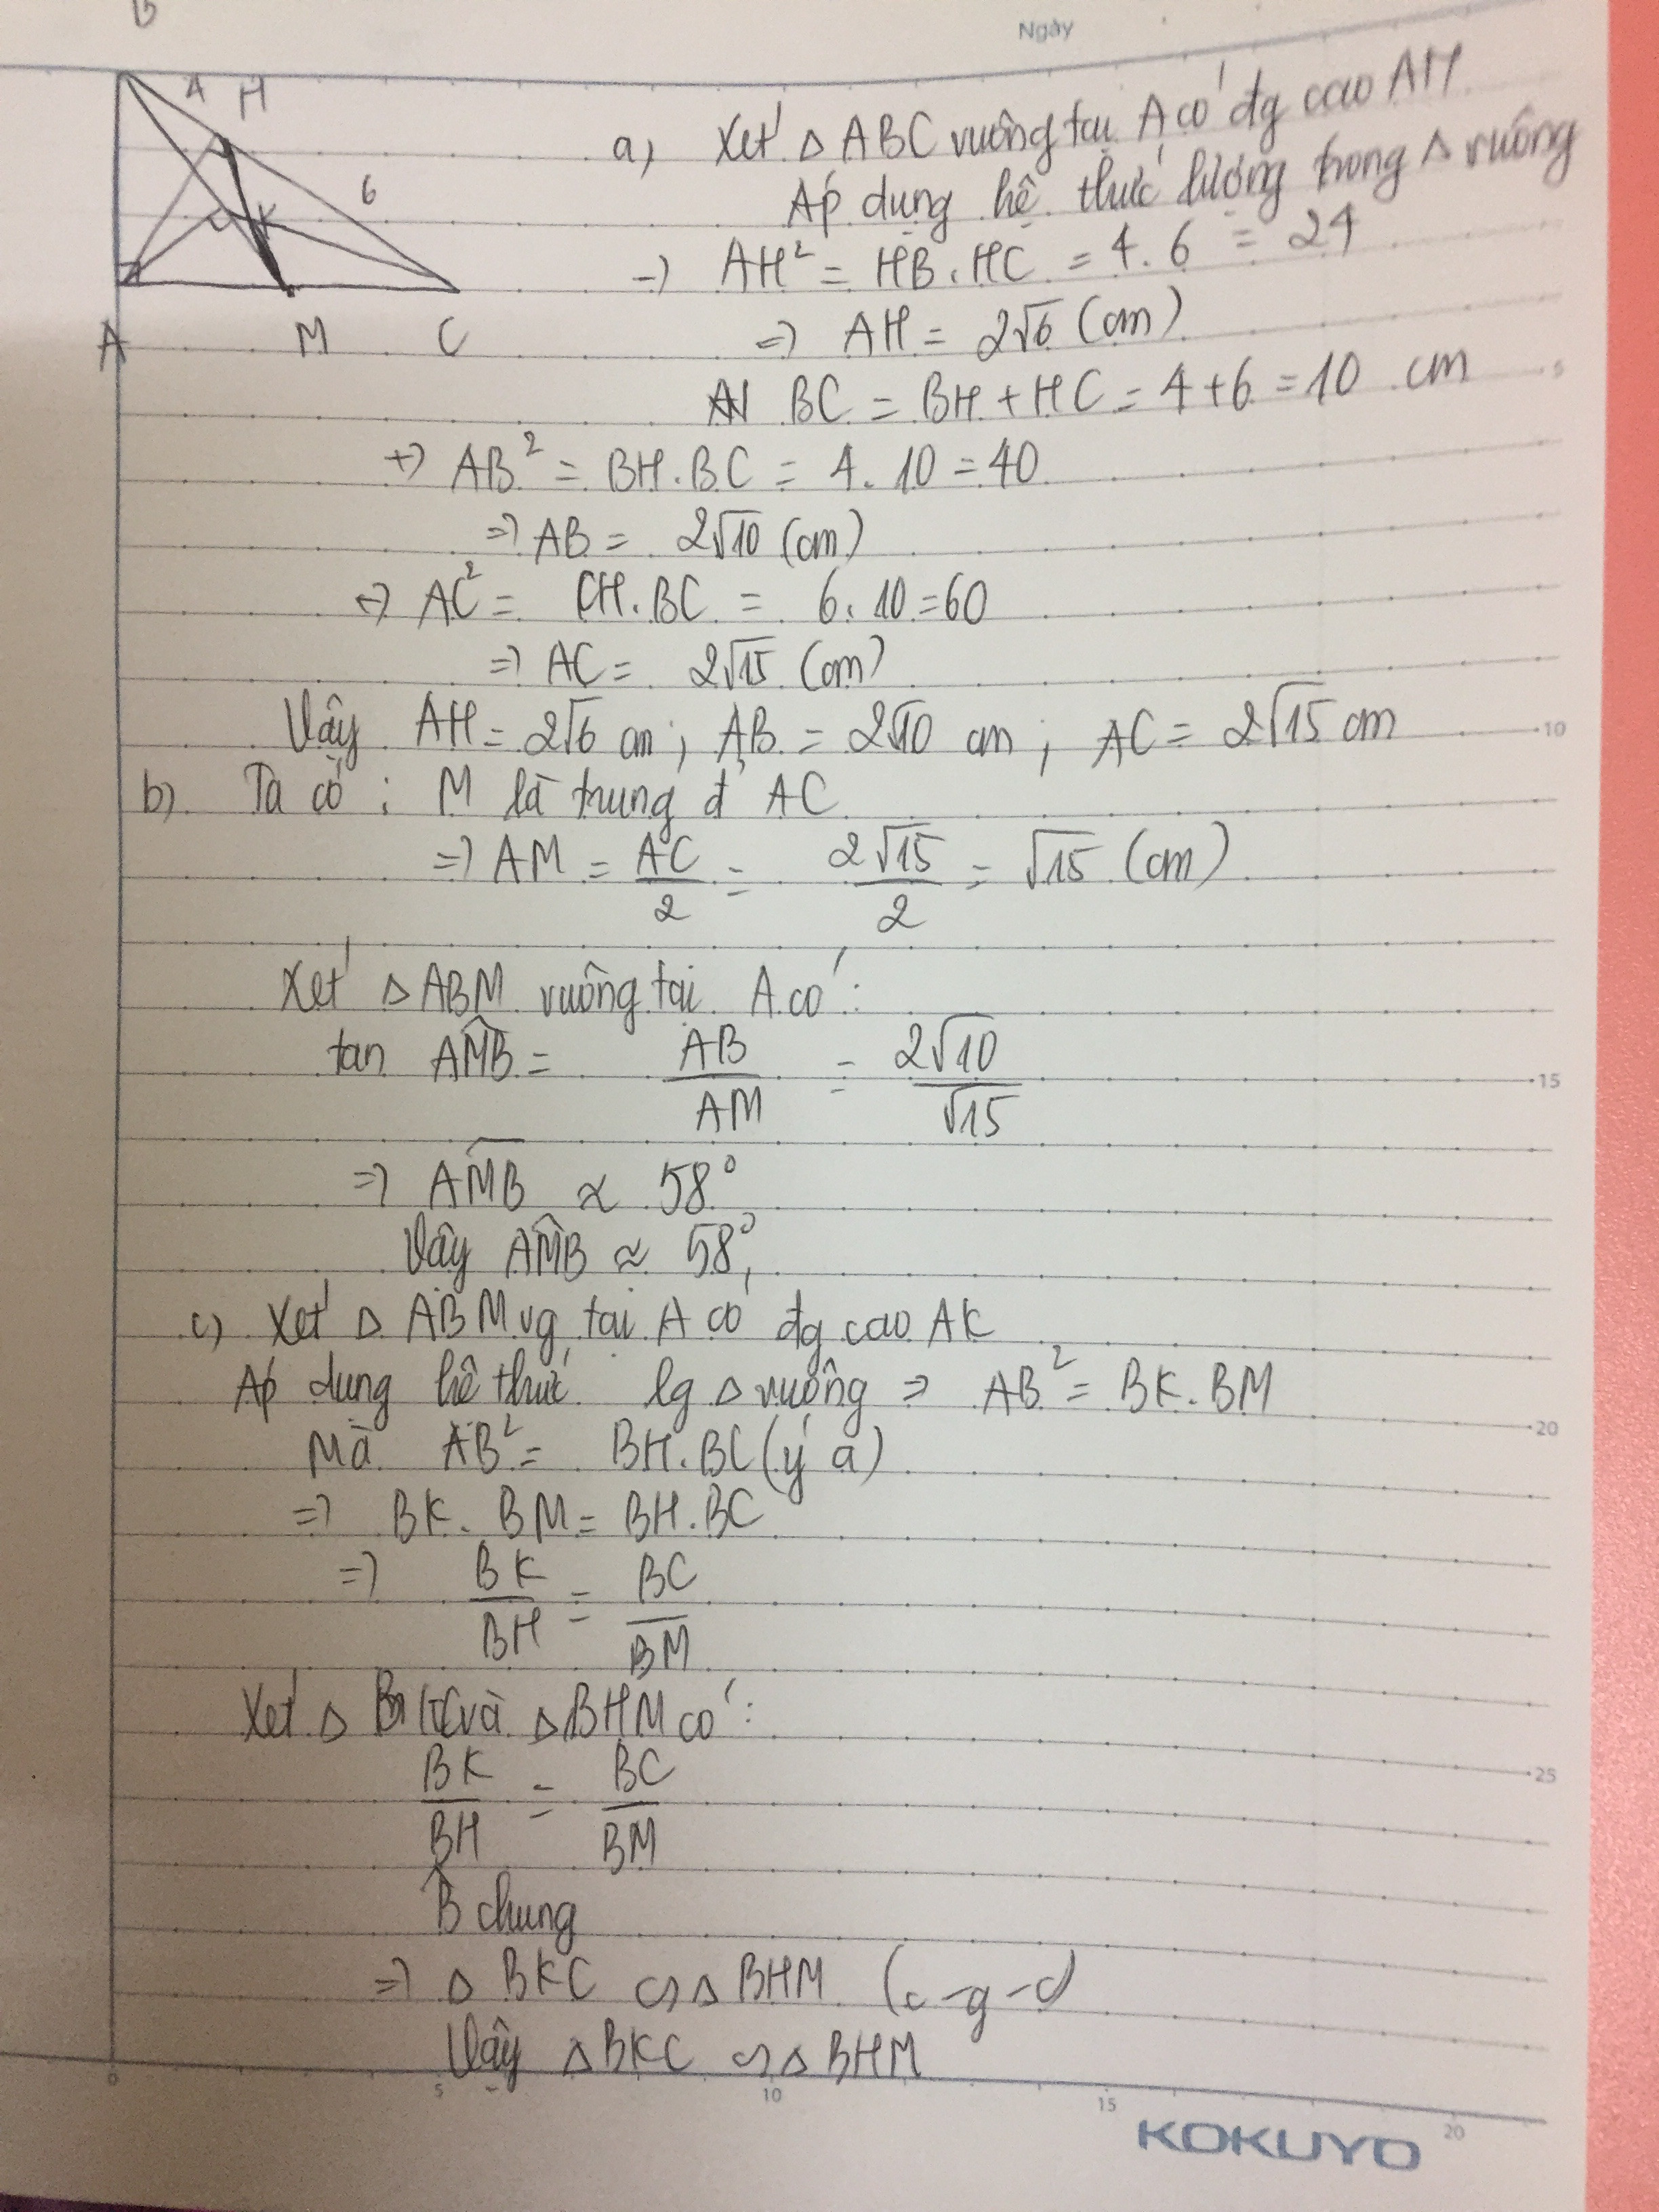 B
Ngày
4 H
6
K
A M C
a) Xét Δ ABC vuông tại A có đg cao AH
Áp dụng hệ thức lượng trong Δ vuông
=) AH² = HB.HC = 4.6 = 24
=) AH = 2√6 (cm)
BC = BH + HC = 4+6 = 10 cm
+) AB² = BH.BC = 4.10 = 40
=) AB = 2√10 (cm)
+) AC² = CH.BC = 6.10 = 60
=) AC = 2√15 (cm)
Vậy AH = 2√6 cm; AB = 2√10 cm; AC = 2√15 cm
b) Ta có: M là trung đ' AC
=) AM = AC/2 = 2√15/2 = √15 (cm)
Xét Δ ABM vuông tại A có:
tan AMB̂ = AB/AM = 2√10/√15
=) AMB̂ ≈ 58°
Vậy AMB̂ ≈ 58°,
c) Xét Δ ABM vg tại A có đg cao AK
Áp dụng hệ thức lg Δ vuông => AB² = BK.BM
Mà AB² = BH.BC (ý a)
=) BK.BM = BH.BC
=) BK/BH = BC/BM
Xét Δ BKC và Δ BHM có:
BK/BH = BC/BM
B̂ chung
=) Δ BKC ∽ Δ BHM (c-g-c)
Vậy Δ BKC ∽ Δ BHM
5
10
15
20
25
0 5 10 15 20
KOKUYO